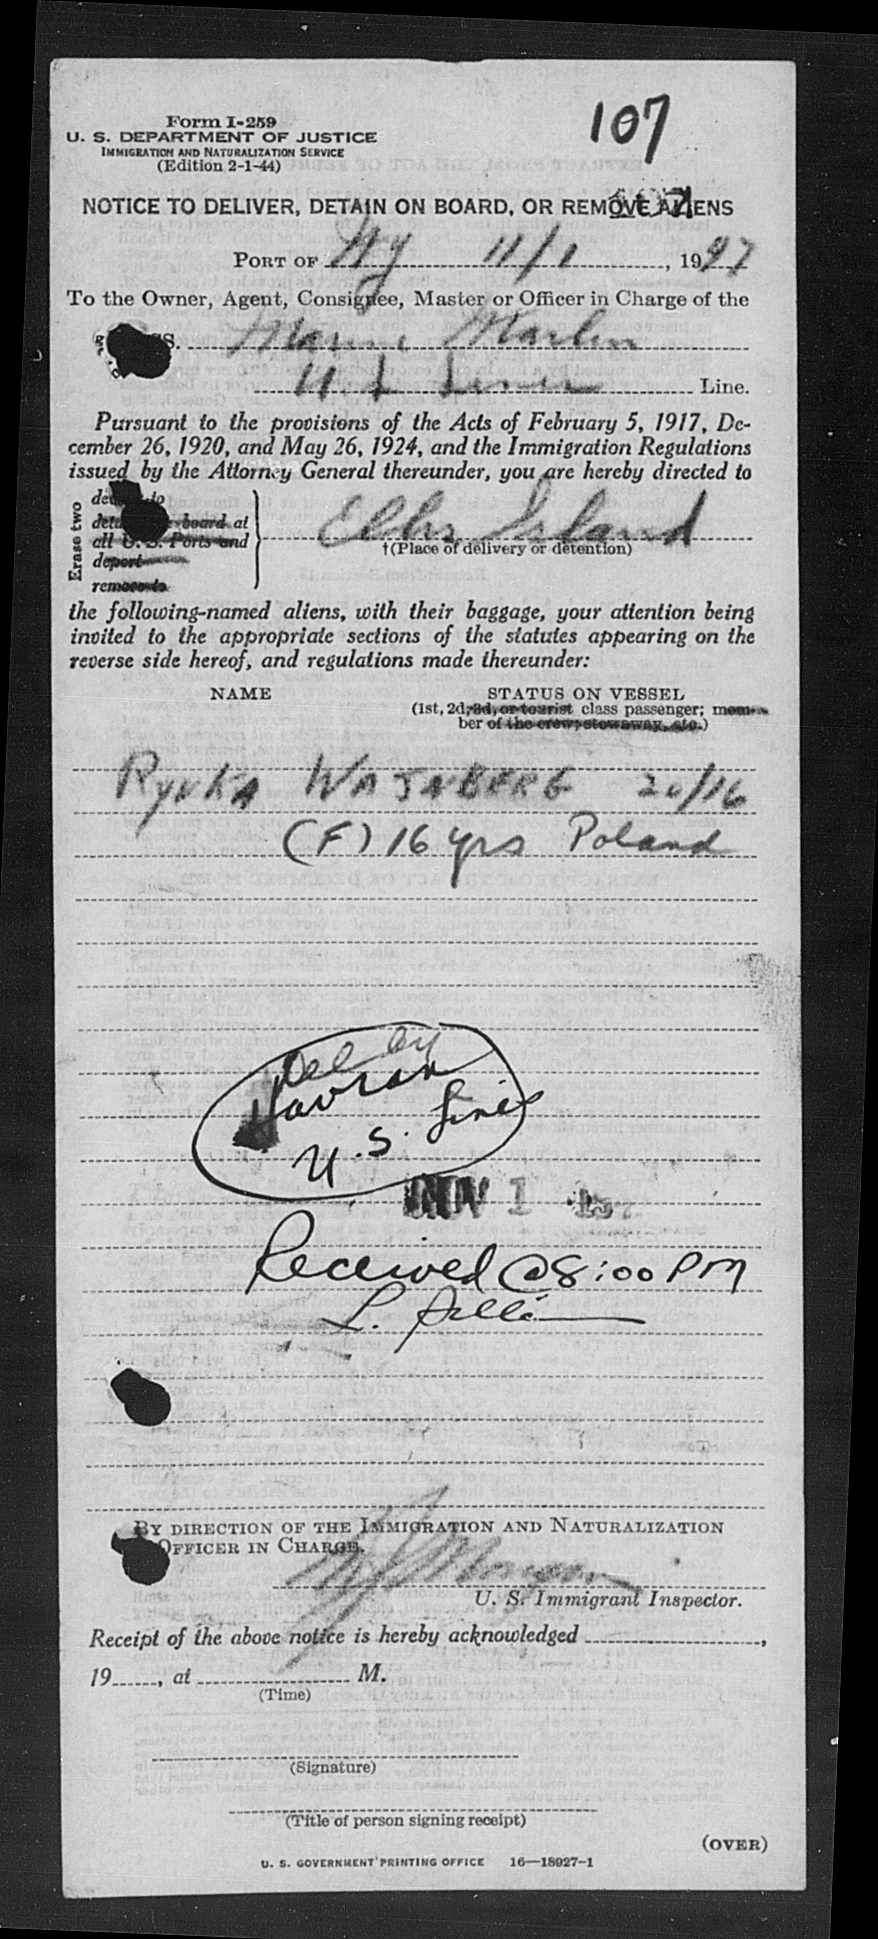 107
Form I-259
U. S. DEPARTMENT OF JUSTICE
IMMIGRATION AND NATURALIZATION SERVICE
(Edition 2-1-44)
NOTICE TO DELIVER, DETAIN ON BOARD, OR REMOVE ALIENS
PORT OF NY 11/1, 1947
To the Owner, Agent, Consignee, Master or Officer in Charge of the
S. Marine Marlin
U.S. Lines Line.
Pursuant to the provisions of the Acts of February 5, 1917, De-
cember 26, 1920, and May 26, 1924, and the Immigration Regulations
issued by the Attorney General thereunder, you are hereby directed to
Erase two
to
board at
all U. S. Ports and
deport
remove to
Ellis Island
†(Place of delivery or detention)
the following-named aliens, with their baggage, your attention being
invited to the appropriate sections of the statutes appearing on the
reverse side hereof, and regulations made thereunder:
NAME STATUS ON VESSEL
(1st, 2d, 3d, or tourist class passenger; mem-
ber of the crew, stowaway, etc.)
WAJNBERG 20/16
(F) 16 yrs Poland
Del by
Havran
U.S. Lines
NOV 1
Received @ 8:00 PM
L.
BY DIRECTION OF THE IMMIGRATION AND NATURALIZATION
OFFICER IN CHARGE.
U. S. Immigrant Inspector.
Receipt of the above notice is hereby acknowledged ,
19 , at M.
(Time)
(Signature)
(Title of person signing receipt)
(OVER)
U. S. GOVERNMENT PRINTING OFFICE 16—18927-1